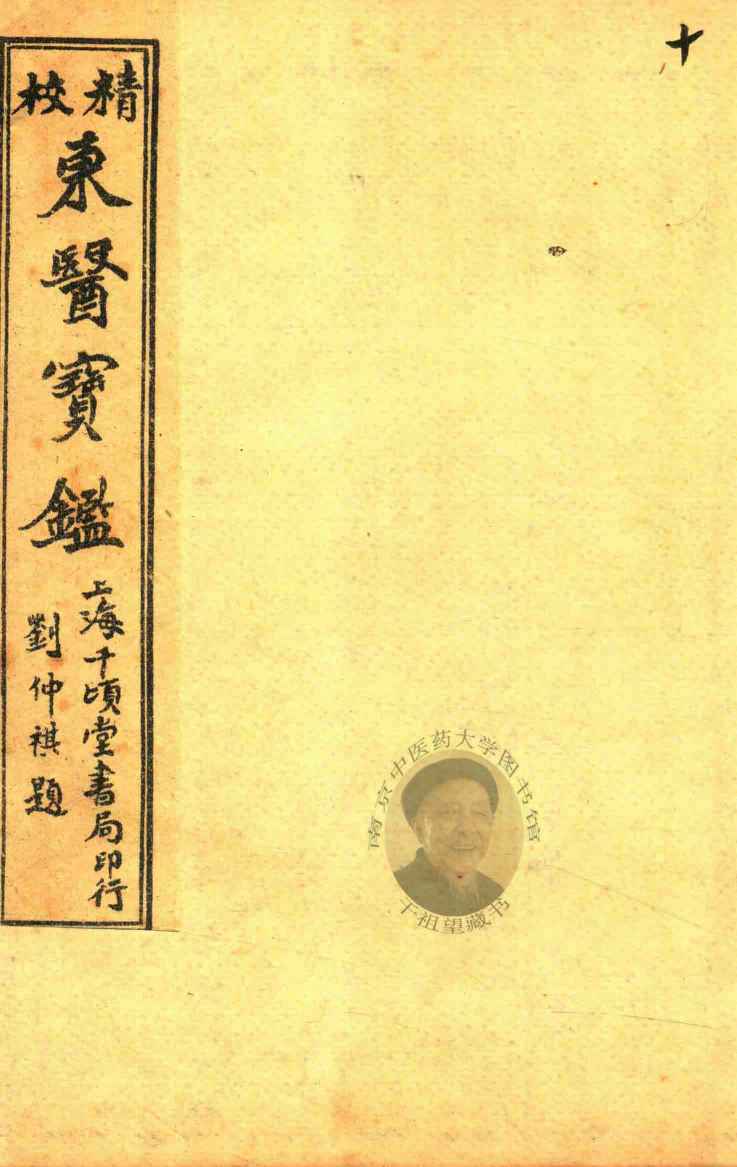 十
精校
東醫寶鑑
上海千頃堂書局印行
劉仲祺題
南京中医药大学图书馆
干祖望藏书